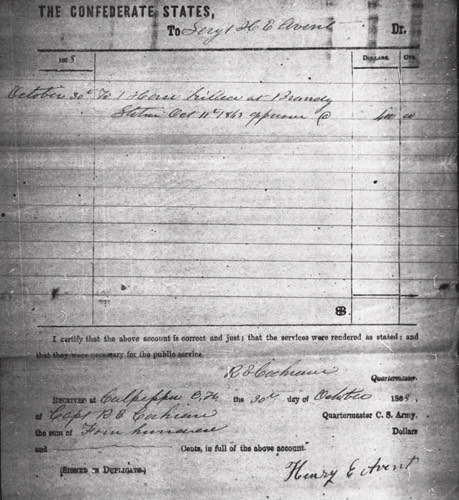 THE CONFEDERATE STATES,
To Sergt H E Avent Dr.
1863 DOLLARS. CTS.
October 30th To 1 Horse killed at Brandy
Station Oct 11th 1863 @ 400 00
I certify that the above account is correct and just; that the services were rendered as stated; and
that they were necessary for the public service.
R E Cochrane
Quartermaster.
RECEIVED at Culpepper C. H. the 30th day of October 1863,
of Capt R E Cochrane Quartermaster C. S. Army,
the sum of Four hundred Dollars
and Cents, in full of the above account.
(SIGNED IN DUPLICATE.) Henry E Avent